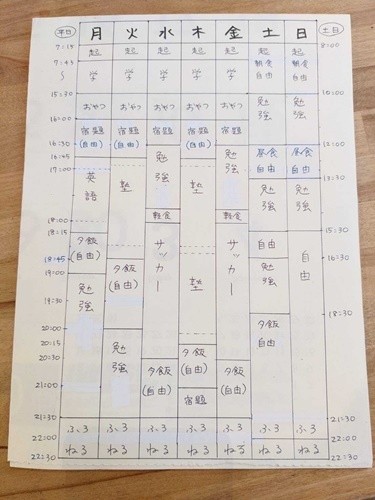 平日 月 火 水 木 金 土 日 土日
7:15 起 起 起 起 起 起 起 8:00
7:45 学 学 学 学 学 朝食 朝食
〜 自由 自由
15:30 おやつ おやつ おやつ おやつ おやつ 勉強 勉強 10:00
16:00 宿題 宿題 宿題 宿題 勉強
16:30 (自由) (自由) 勉強 (自由) 昼食 昼食 13:00
16:45 自由 自由
17:00 英語 塾 塾 勉強 勉強 13:30
軽食 軽食
18:00
18:15 夕飯 サッカー サッカー 自由 自由 15:30
18:45 (自由) 夕飯 勉強 16:30
19:00 勉強 (自由) 塾
19:30 夕飯 18:30
20:00 勉強 自由
20:15 夕飯
20:30 夕飯 (自由) 夕飯
21:00 (自由) 宿題 (自由)
21:30 ふろ ふろ ふろ ふろ ふろ ふろ ふろ 21:30
22:00 ねる ねる ねる ねる ねる ねる ねる 22:00
22:30 22:30